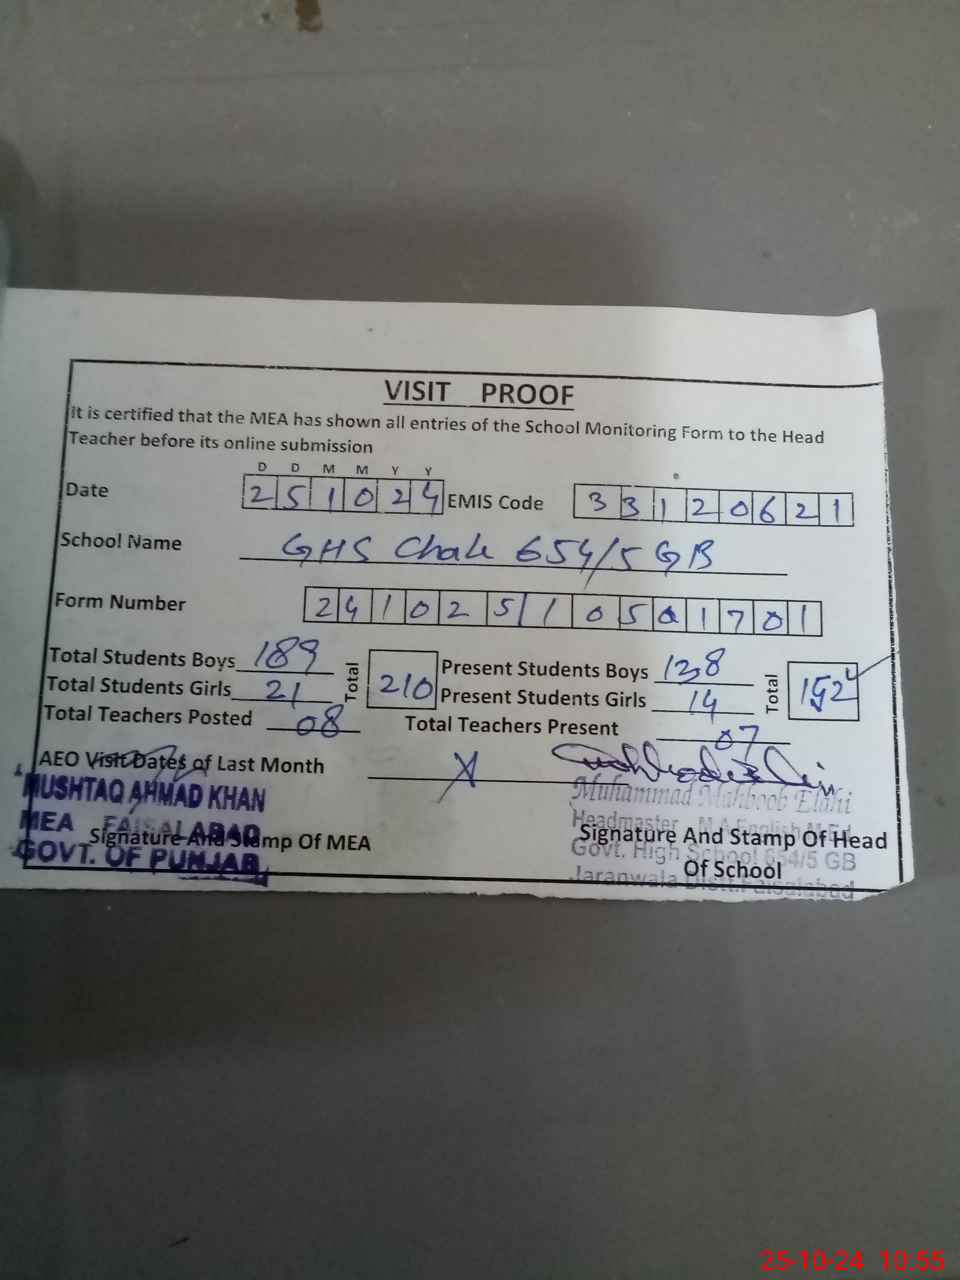 VISIT PROOF
It is certified that the MEA has shown all entries of the School Monitoring Form to the Head
Teacher before its online submission
D D M M Y Y
Date 2 5 1 0 2 4 EMIS Code 3 3 1 2 0 6 2 1
School Name GHS Chak 654/5 GB
Form Number 2 4 1 0 2 5 1 0 5 0 1 7 0 1
Total Students Boys 189 Total 210 Present Students Boys 138 Total 152
Total Students Girls 21 Present Students Girls 14
Total Teachers Posted 08 Total Teachers Present 07
AEO Visit Dates of Last Month X
MUSHTAQ AHMAD KHAN
MEA FAISALABAD
GOVT. OF PUNJAB
Signature And Stamp Of MEA
Muhammad Mahboob Elahi
Headmaster M.A English M.Ed
Govt. High School 654/5 GB
Jaranwala Distt. Faisalabad
Signature And Stamp Of Head
Of School
25-10-24 10:55